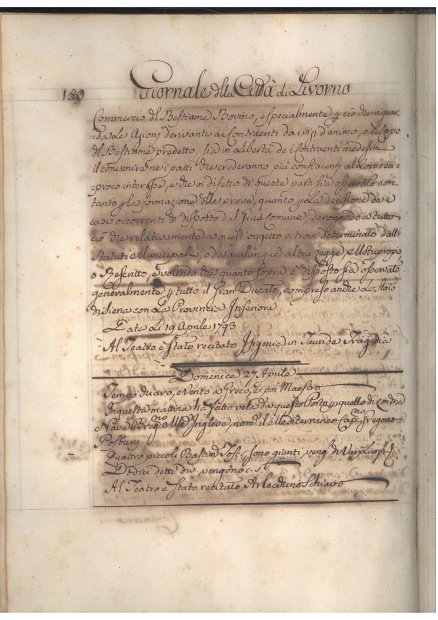 150 Giornale della Città di Livorno
Commercio del Bestiame Bovino, e specialmente p ciò che riguar
da Le Azioni derivanti ai Contraenti da vizj d'animo, o di Corpo
del Bestiame predetto, sia in Libertà dei Contraenti medesimi
il convenirne i patti che crederanno più confacenti al Loro reci
proco interesse, e che in difetto di questi patti sia osservato non
tanto p la formazione delle prove, quanto p la decisione dei
casi occorrenti il disposto del Jus Comune, derogando a tutto
ciò che relativamente a questi oggetti si trovi determinato dalli
Statuti Municipali, o da qualunque altra Legge, e Motuproprio
o Rescritto, e volendo che quanto sopra è disposto sia osservato
generalmente p tutto il Gran Ducato, compreso anche Lo Stato
di Siena con La Provincia Inferiore
Data Li 19 Aprile 1793
Al Teatro è Stato recitato Ifigenia in Tauride Tragedia
Domenica 2 Aprile
Tempo chiaro, e Vento a Greco, e poi Maestro
In questa mattina ha fatto vela da questo Porto p quello di Londra
Nave Inglese, nom. il Mediterraneo Cap.
Quattro piccoli Bastim. Tosc. sono giunti, veng. di
Dodici detti div. vengono c. s.
Al Teatro è Stato recitato Arlechino Schiavo